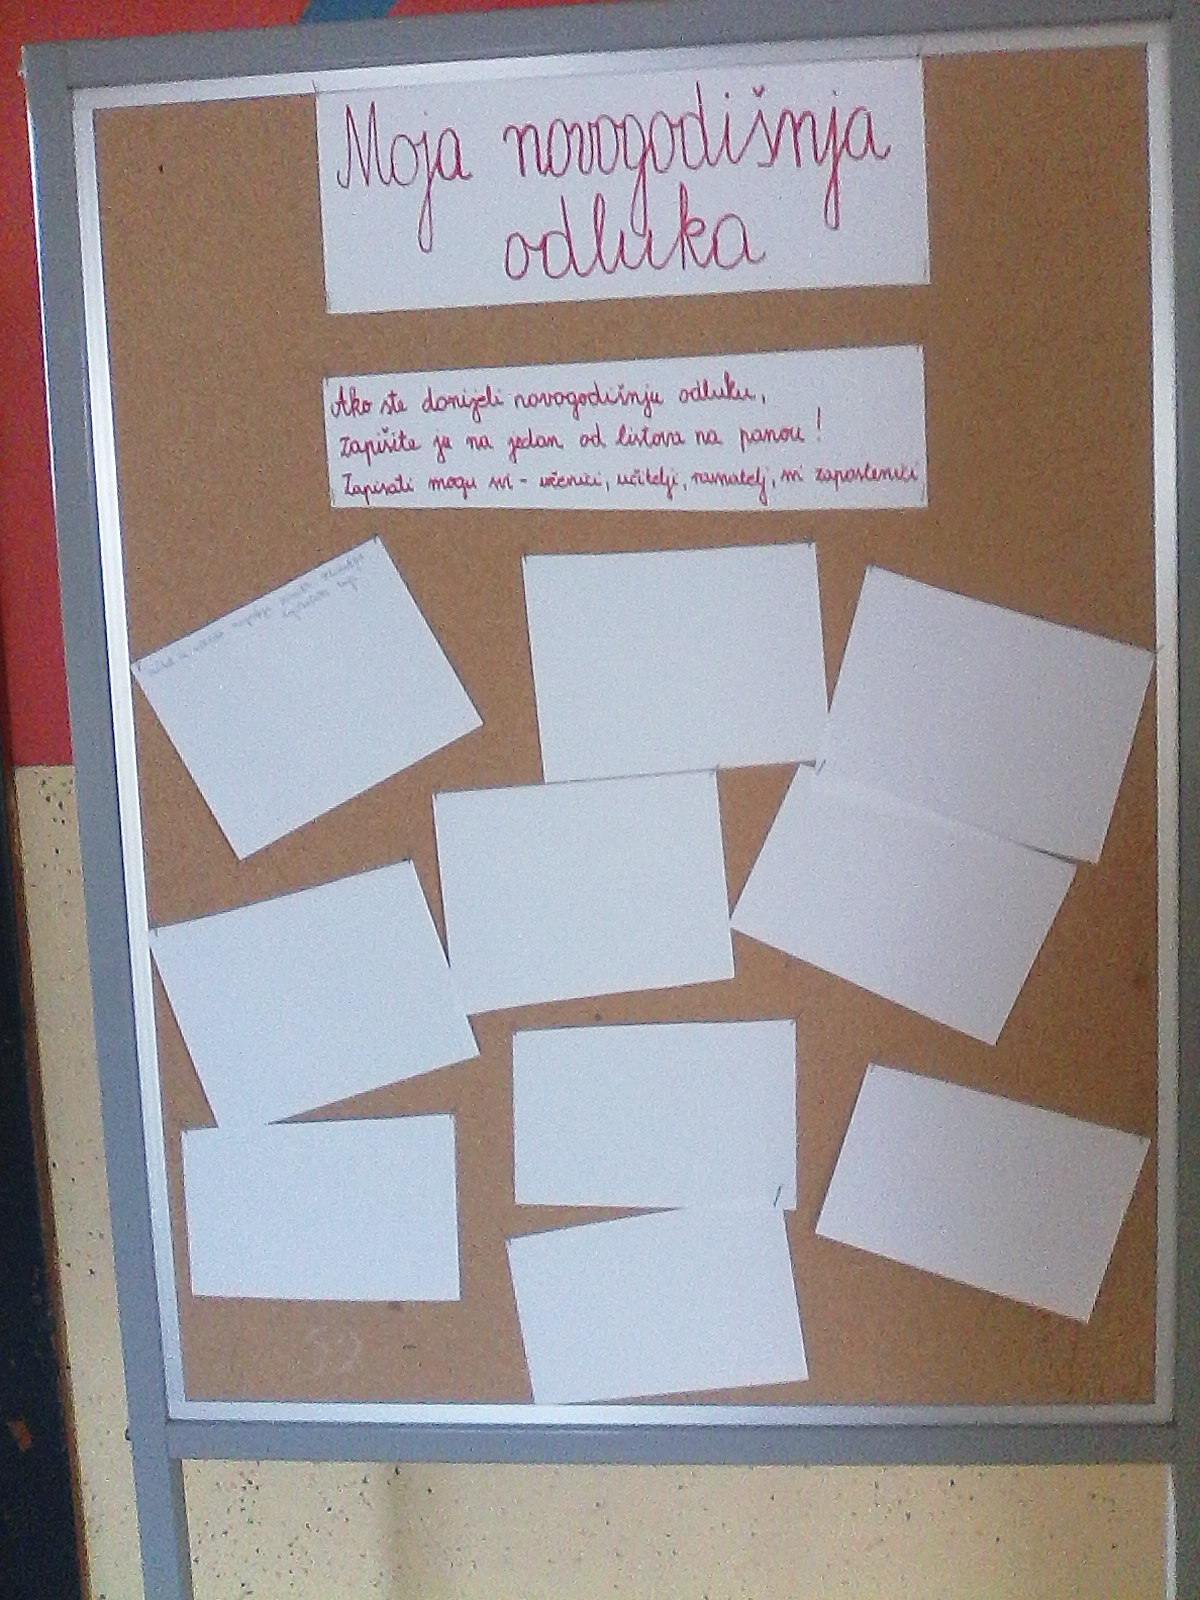 Moja novogodišnja
odluka
Ako ste donijeli novogodišnju odluku,
zapišite ju na jedan od listova na panou!
Zapisati mogu svi - učenici, učitelji, ravnatelj, svi zaposlenici